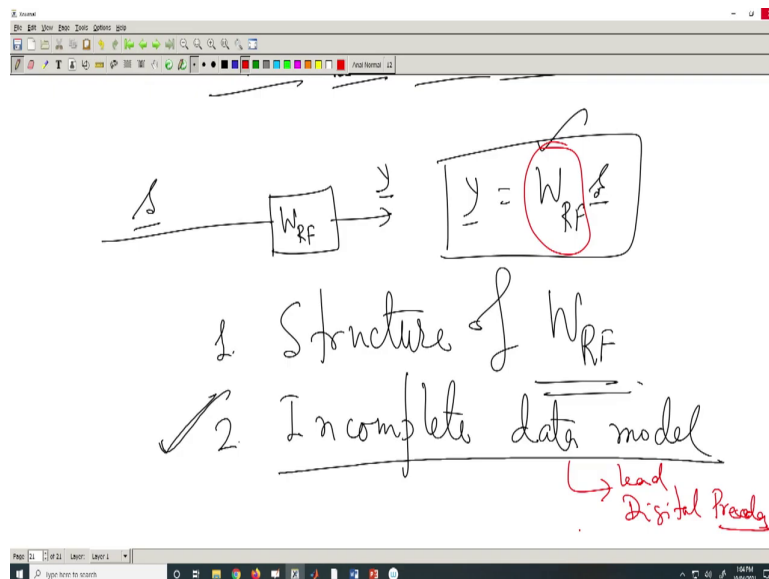 Xournal
File Edit View Page Tools Options Help
Arial Normal 12
s
W_RF
y
y = W_RF s
1. Structure of W_RF
2. Incomplete data model
lead
Digital
Page 21 of 21 Layer: Layer 1
Type here to search
1:04 PM